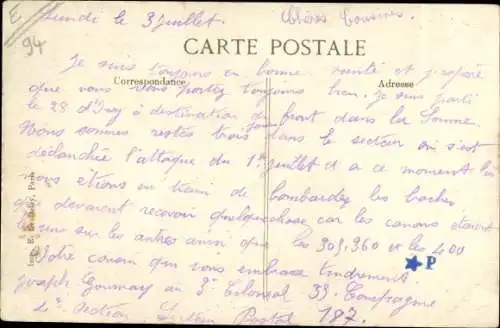 E
94
Lundi le 3 juillet. Chères Cousines.
CARTE POSTALE
Je suis toujours en bonne santé et j'espère
Correspondance Adresse
que vous vous portez toujours bien. Je suis parti
le 28 d' à destination du front dans la Somme
Nous sommes restés trois jours dans le secteur où s'est
déclanchée l'attaque du 1er juillet et a ce moment là
nous étions en train de bombarder les boches
qui devaient recevoir quelque chose car les canons étaient
les uns sur les autres ainsi que les 305, 360 et les 400
Votre cousin qui vous embrasse tendrement.
P
Joseph au 3e Colonial 33 Compagnie
4e Section Secteur Postal 187
Paris